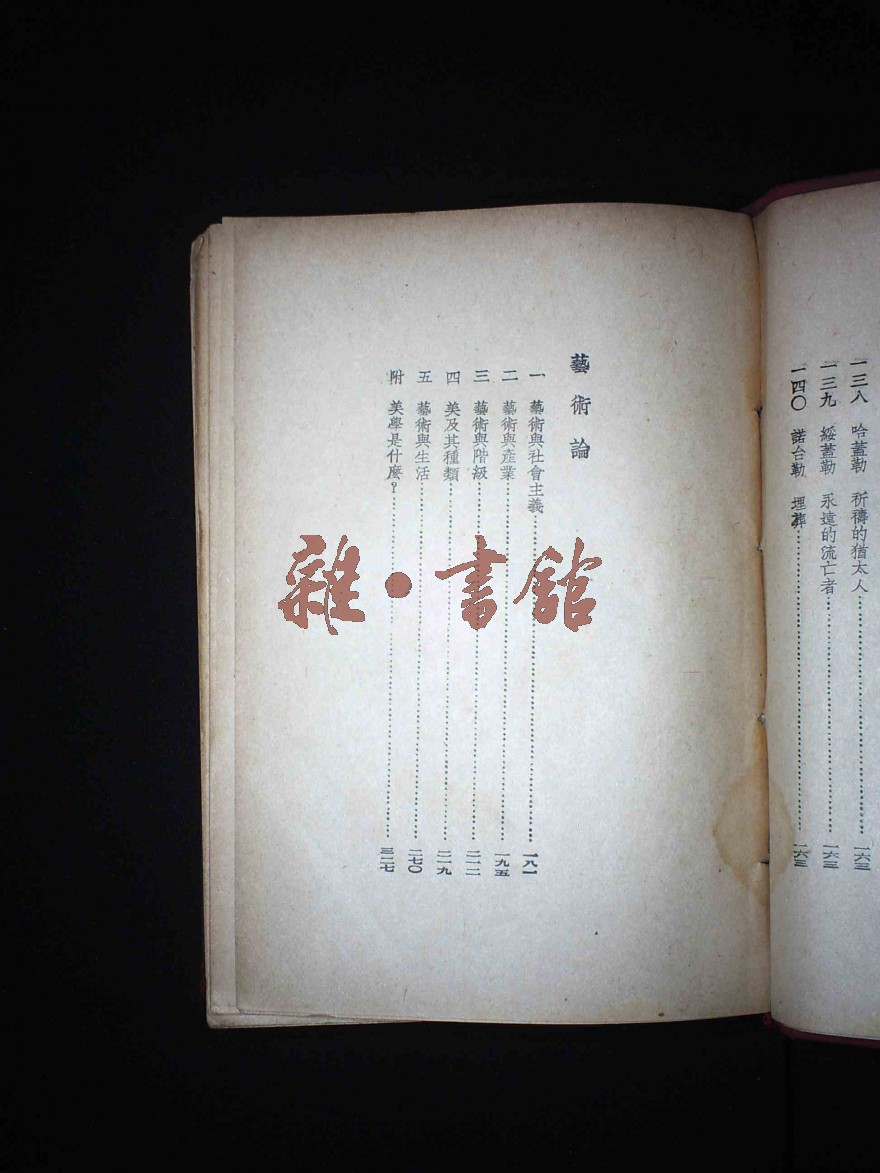 一三八　哈蓋勒　祈禱的猶太人……一六三
一三九　綏蓋勒　永遠的流亡者……一六三
一四〇　諾台勒　埋葬……一六三
藝術論
一　藝術與社會主義……一八一
二　藝術與產業……一九五
三　藝術與階級……二一二
四　美及其種類……二一九
五　藝術與生活……二七〇
附　美學是什麼？……三二七
雜·書館